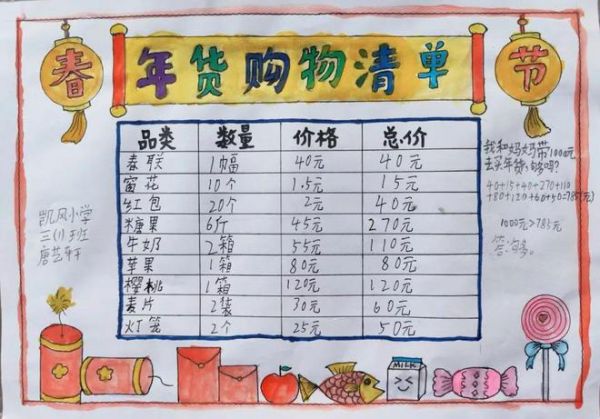 春
年货购物清单
节
品类 数量 价格 总价
春联 1幅 40元 40元
窗花 10个 1.5元 15元
红包 20个 2元 40元
糖果 6斤 45元 270元
牛奶 2箱 55元 110元
苹果 1箱 80元 80元
樱桃 1箱 120元 120元
麦片 2袋 30元 60元
灯笼 2个 25元 50元
凯风小学
三(1)班
我和妈妈带1000元
去买年货,够吗?
40+15+40+270+110
+80+120+60+50=785(元)
1000元>785元
答:够。
MILK